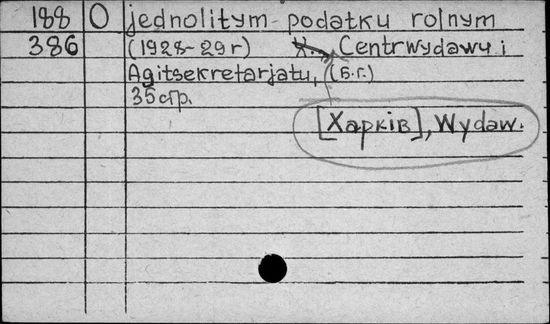 188 O jednolitym podatku rolnym
386 (1928-29 г) Х., Centrwydawu i
Agitsekretarjatu, (б.г.)
35 стр.
[Харкiв], Wydaw.